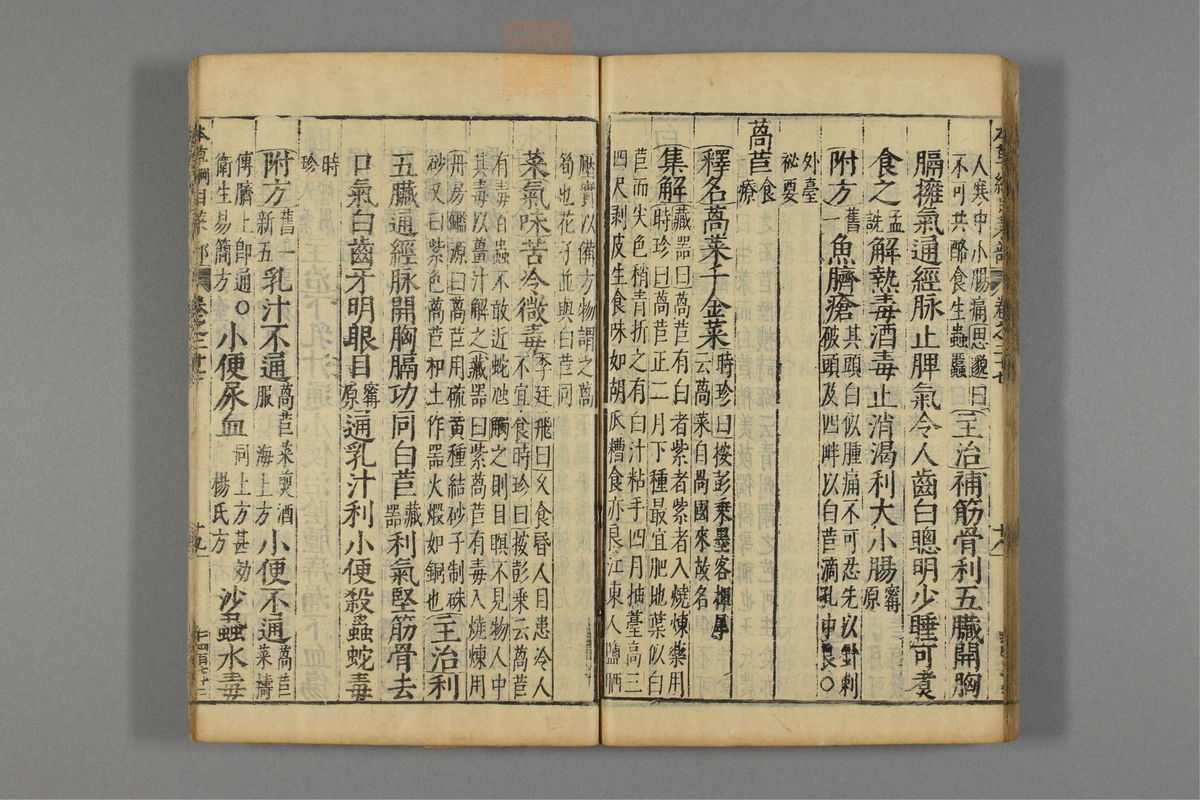 人寒中小腸痛思邈曰
不可共酪食生蟲䘌
主治補筋骨利五臟開胸
膈擁氣通經脉止脾氣令人齒白聰明少睡可煮
食之孟詵解熱毒酒毒止消渴利大小腸甯原
附方舊一魚臍瘡其頭白似腫痛不可忍先以針刺
破頭及四畔以白苣滴孔中良〇
外臺
秘要
萵苣食療
釋名萵菜千金菜時珍曰按彭乘墨客揮犀
云萵菜自咼國來故名
集解藏器曰萵苣有白者紫者紫者入燒煉藥用
時珍曰萵苣正二月下種最宜肥地葉似白
苣而尖色稍青折之有白汁粘手四月抽薹高三
四尺剥皮生食味如胡瓜糟食亦良江東人鹽晒
壓實以備方物謂之萵
筍也花子並與白苣同
菜氣味苦冷微毒李廷飛曰久食昏人目患冷人
不宜食時珍曰按彭乘云萵苣
有毒百蟲不敢近蛇虺觸之則目瞑不見物人中
其毒以薑汁解之藏器曰紫萵苣有毒入燒煉用
丹房鑑源曰萵苣用硫黄種結砂子制硃
砂又曰紫色萵苣和土作器火煅如銅也
主治利
五臟通經脉開胸膈功同白苣藏器利氣堅筋骨去
口氣白齒牙明眼目甯原通乳汁利小便殺蟲蛇毒
時
珍
附方舊一新五乳汁不通萵苣菜煎酒服海上方小便不通萵苣菜擣
傅臍上即通〇小便尿血同上方甚効楊氏方沙蝨水毒
衛生易簡方
卷之二十七
十八
本草綱目菜部
卷之二十七
十九